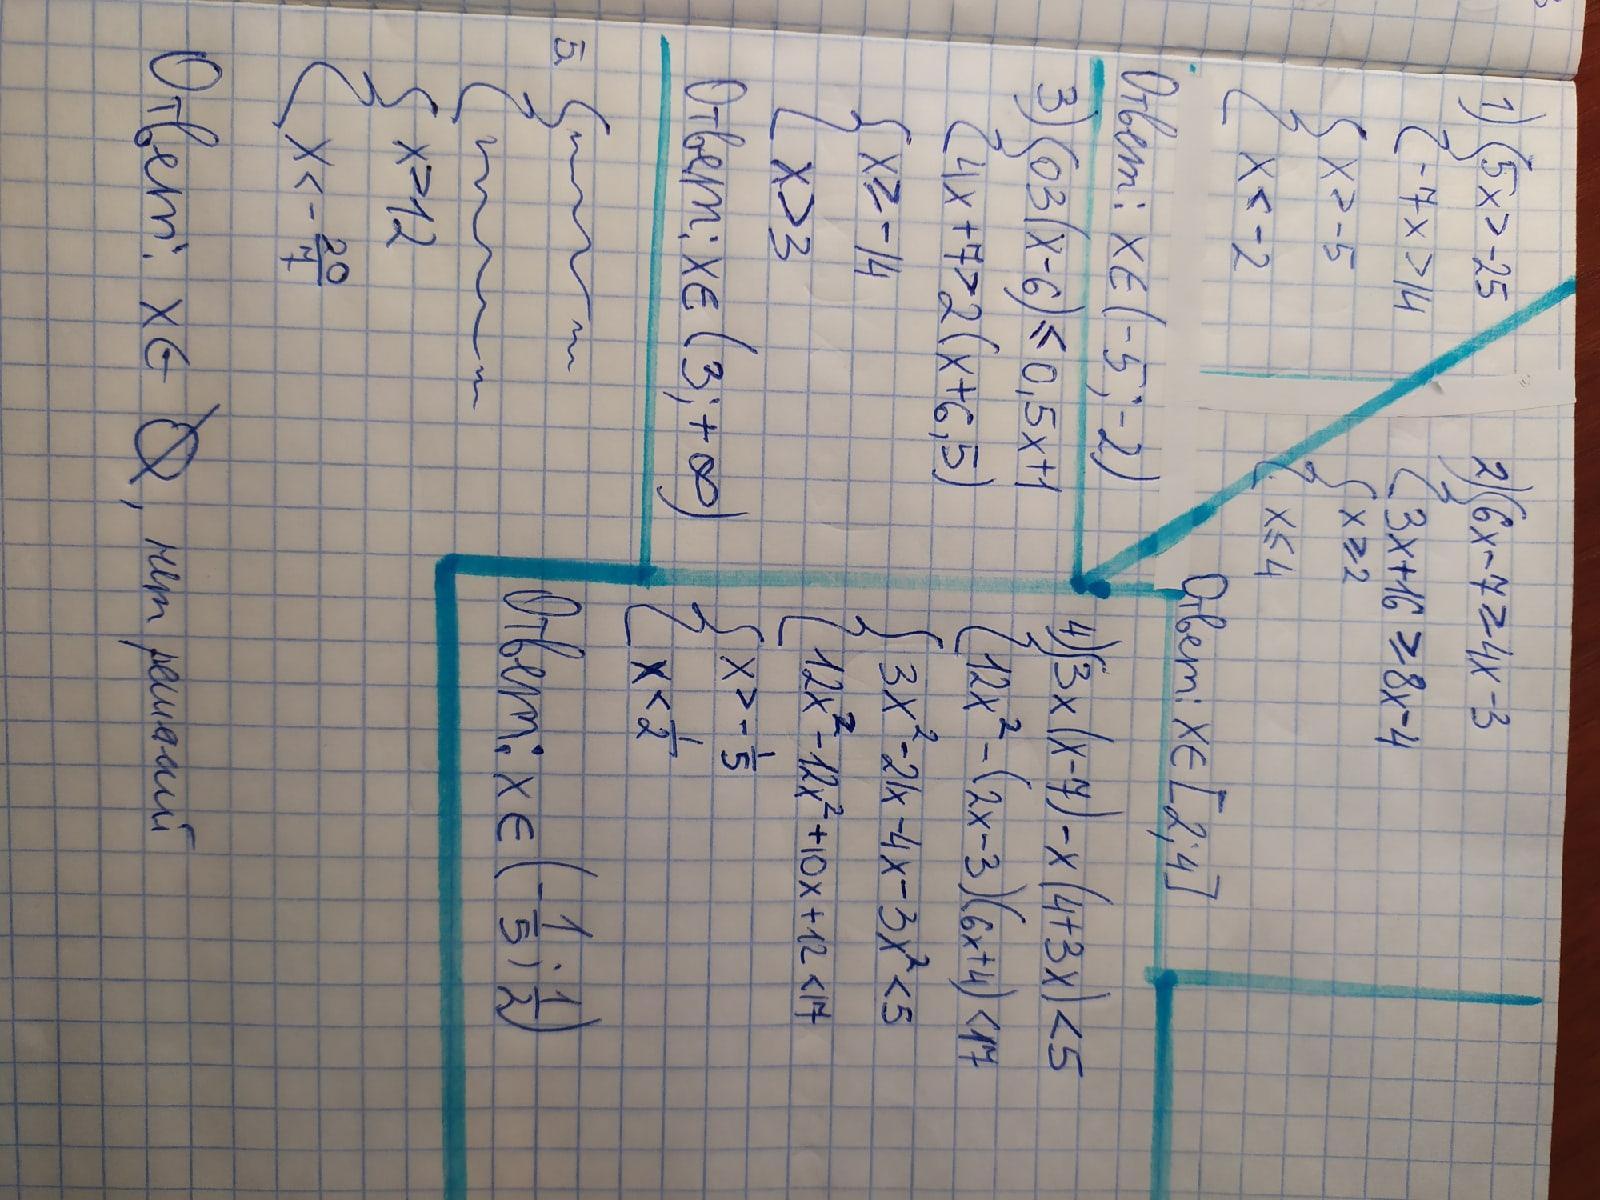 1) { 5x > -25
-7x > 14
{ x > -5
x < -2
Ответ: x∈(-5; -2)
2) { 6x-7 ≥ 4x-3
3x+16 ≥ 8x-4
{ x ≥ 2
x ≤ 4
Ответ: x∈[2; 4]
3) { 03(x-6) ≤ 0,5x+1
4x+7 > 2(x+6,5)
{ x ≥ -14
x > 3
Ответ: x∈(3; +∞)
4) { 3x(x-7) - x(4+3x) < 5
12x² - (2x-3)(6x+4) < 17
{ 3x² - 21x - 4x - 3x² < 5
12x² - 12x² + 10x + 12 < 17
{ x > -1/5
x < 1/2
Ответ: x∈(-1/5; 1/2)
5. {
{ x ≥ 12
x < -20/7
Ответ: x∈ ∅, нет решений